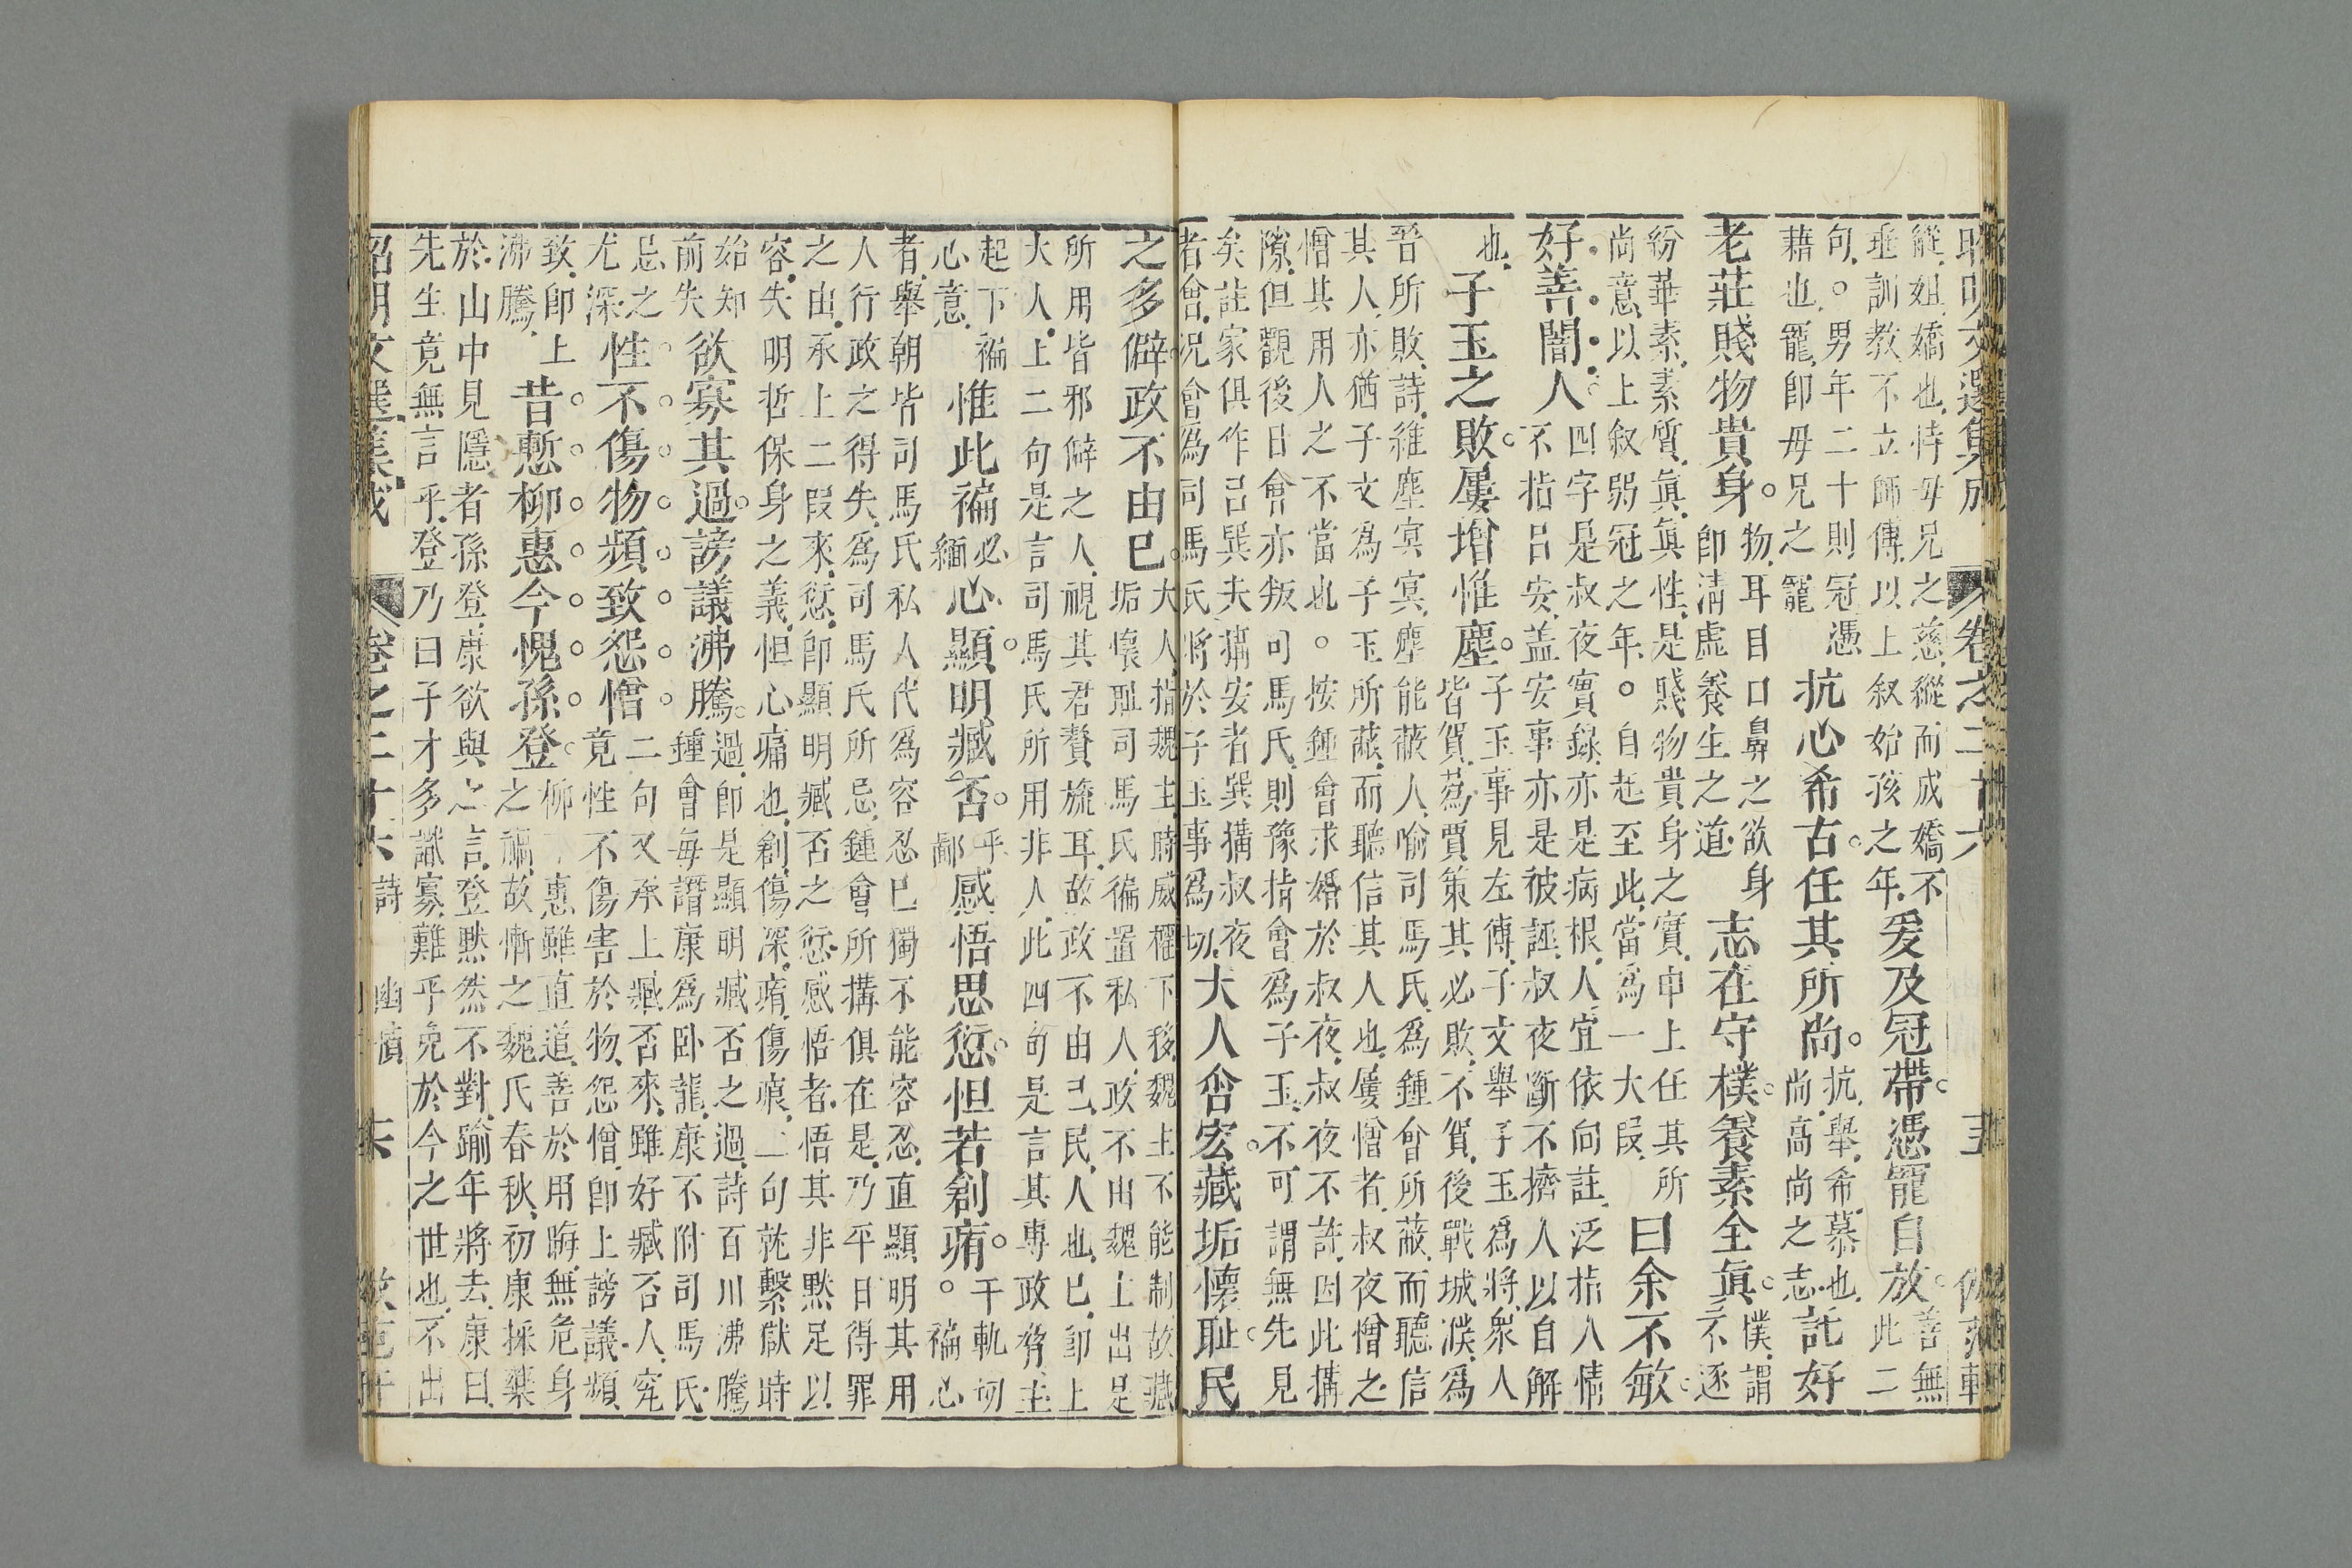 縱姐嬌也恃母兄之慈縱而成嬌不
垂訓教不立師傅以上叙始孩之年
爰及冠帶憑寵自放
善無
此二
句男年二十則冠憑
藉也寵即毋兄之寵
抗心希古任其所尚
抗舉希慕也
尚高尚之志
託好
老莊賤物貴身
物耳目口鼻之欲身
即清虛養生之道
志在守樸養素全眞
樸謂
不逐
紛華素素質眞眞性是賤物貴身之實申上任其所
尚意以上叙弱冠之年自起至此當爲一大段
曰余不敏
好善闇人
四字是叔夜實錄亦是病根人宜依向註泛指人情
不指呂安盖安事亦是彼誣叔夜斷不擠人以自解
也
子玉之敗屢增惟塵
子玉事見左傳子文舉子玉爲將衆人
皆賀蒍賈策其必敗不賀後戰城濮爲
晉所敗詩維塵㝠㝠塵能蔽人喻司馬氏爲鍾會所蔽而聽信
其人亦猶子文爲子玉所蔽而聽信其人也屢憎者叔夜憎之
憎其用人之不當也按鍾會求婚於叔夜叔夜不許因此搆
隙但觀後日會亦叛司馬氏則豫指會爲子玉不可謂無先見
矣註家俱作呂巽夫搆安者巽搆叔夜
者會况會爲司馬氏將於子玉事爲切
大人含宏藏垢懷耻民
之多僻政不由己
大人指魏主時威權下移魏主不能制故藏
垢懷耻司馬氏徧置私人政不由魏主出是
所用皆邪僻之人視其君贅旒耳故政不由己民人也己卽上
大人上二句是言司馬氏所用非人此四句是言其專政脅主
起下褊
心意
惟此褊心顯明臧否
必緬
乎鄙
感悟思愆怛若創痏
干軌切
褊心
者舉朝皆司馬氏私人代爲容忍己獨不能容忍直顯明其用
人行政之得失爲司馬氏所忌鍾會所搆俱在是乃平日得罪
之由承上二段來愆卽顯明臧否之愆感悟者悟其非黙足以
容失明哲保身之義怛心痛也創傷深痏傷痕二句就繫獄時
始知
前失
欲寡其過謗議沸騰
過卽是顯明臧否之過詩百川沸騰
鍾會每譖康爲卧龍康不附司馬氏
忌之
尤深
性不傷物頻致怨憎
二句又承上臧否來雖好臧否人究
竟性不傷害於物怨憎卽上謗議頻
致卽上
沸騰
昔慙柳惠今愧孫登
柳下惠雖直道善於用晦無危身
之禍故慚之魏氏春秋初康採藥
於山中見隱者孫登康欲與之言登黙然不對踰年將去康曰
先生竟無言乎登乃曰子才多識寡難乎免於今之世也不出
昭明文選集成
卷之二十六
詩
幽憤